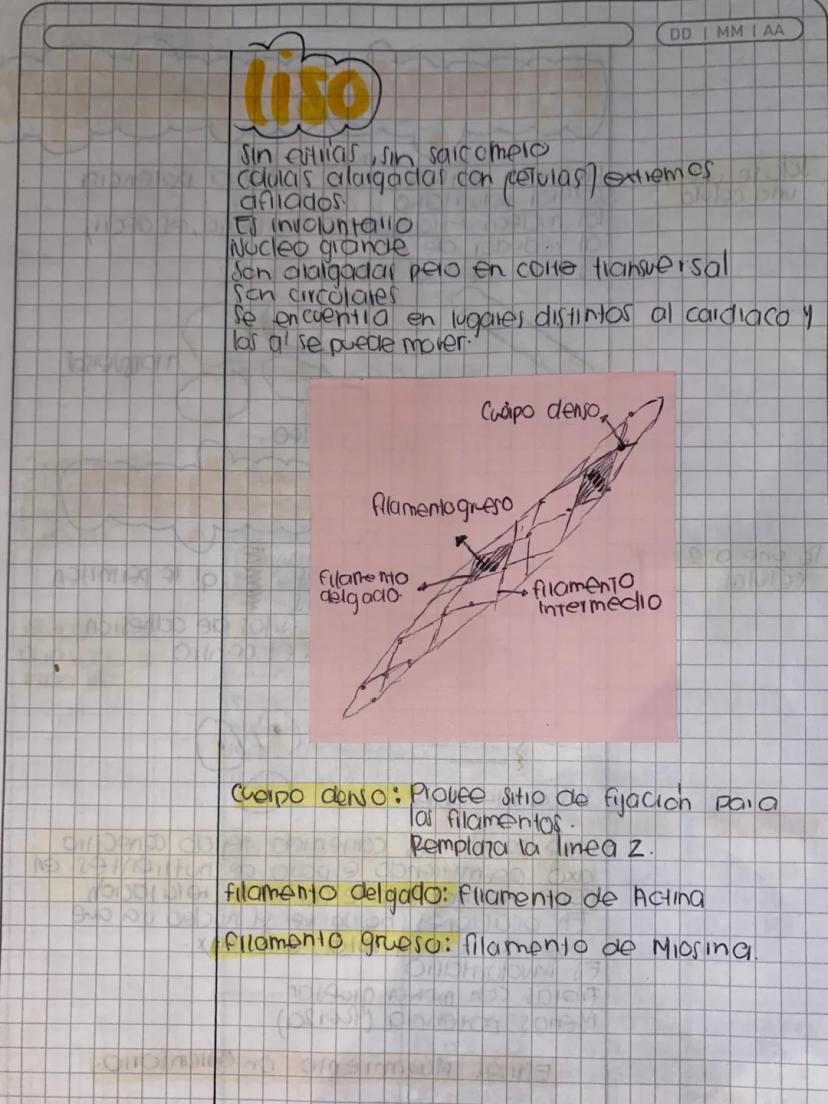 DD | MM | AA
liso
Sin estrías, sin sarcomero
células alargadas con (células) extremos
afilados.
Es involuntario
Núcleo grande
Son alargadas pero en corte transversal
Son circulares
Se encuentra en lugares distintos al cardiaco y
los al se puede mover.
Cuerpo denso
filamento grueso
filamento
delgado.
filamento
intermedio
Cuerpo denso: Provee sitio de fijación para
los filamentos.
Remplaza la linea Z.
filamento delgado: filamento de Actina
filamento grueso: filamento de Miosina.